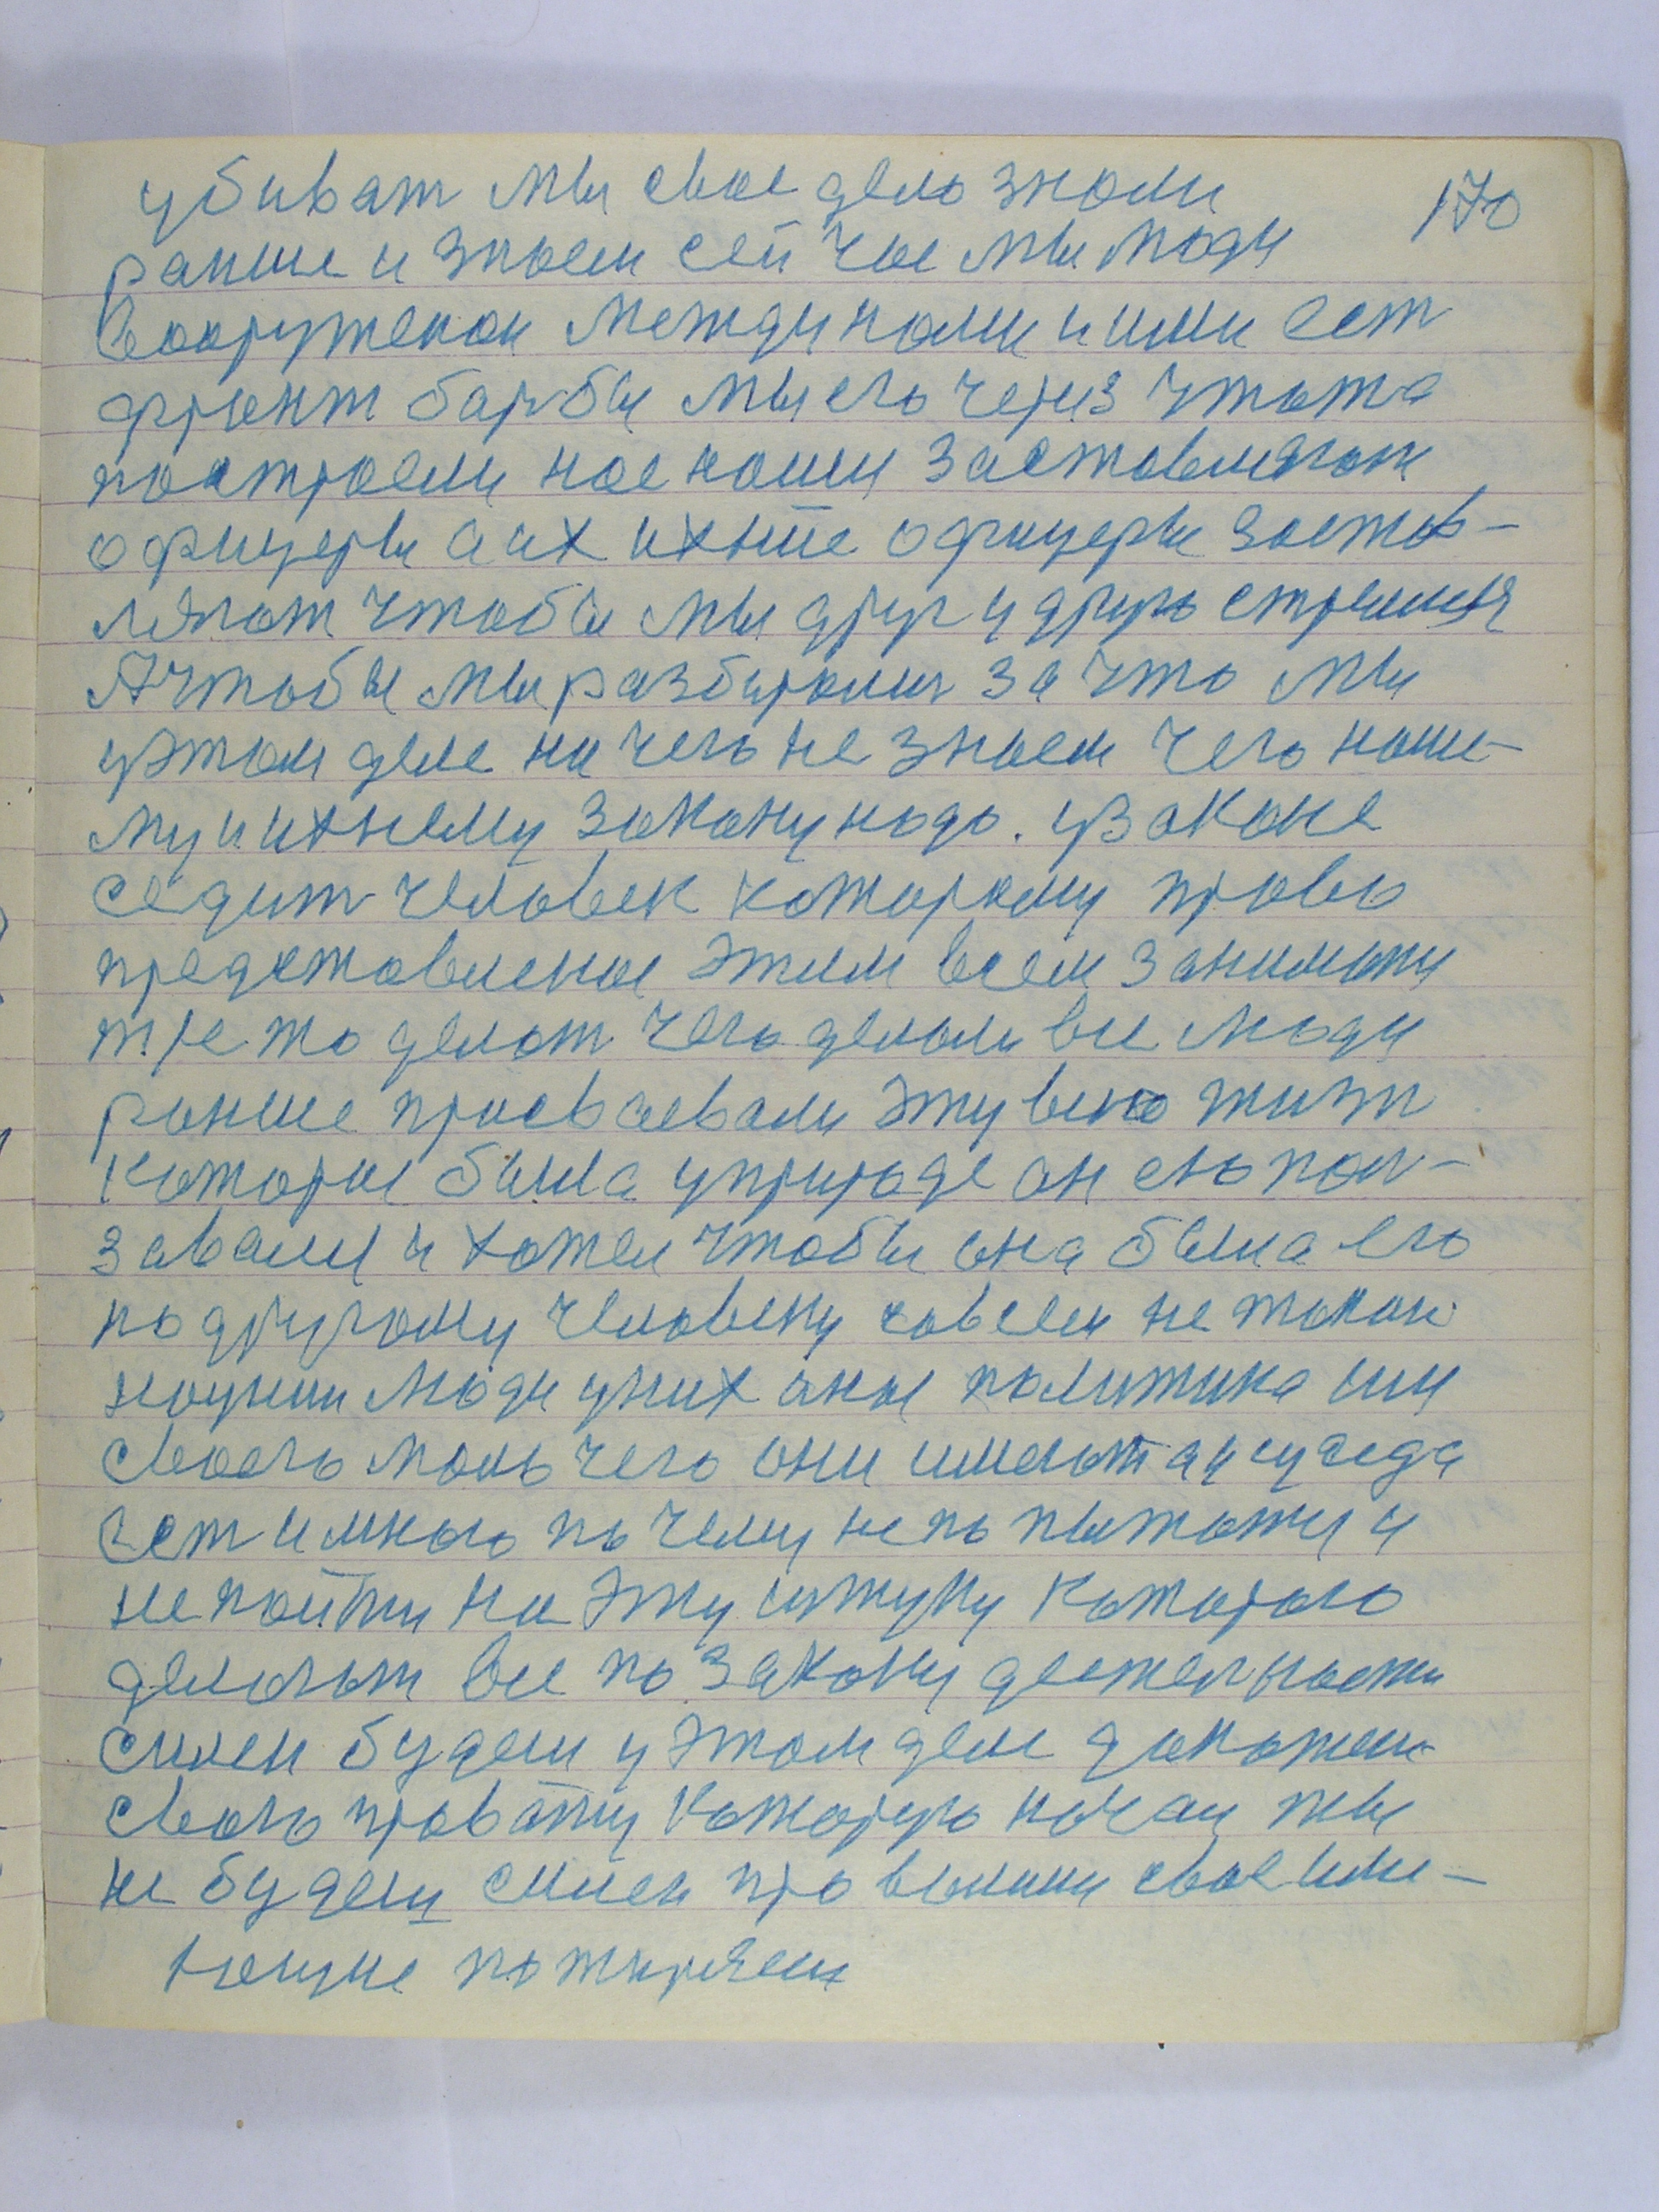 убиват мы свое дело знали 170
ранше и знаем сей час мы люди
вооружоном между нами и ими ест
фронт барбы мы его через чтото
построели нас наши заставляют
офицеры а их ихние офицеры застав-
ляют чтобы мы друг у друга стреляя
А чтобы мы разбирали за что мы
у этом деле ни чего не знаем чего наше-
му и ихнему закону надо. у законе
седит человек которому право
предоставлена этим всем заниматц
то делат чего делали все люди
ранше присваевали эту всю жизн
которая была у природе он ево пол-
завали и хотел чтобы она была его
по другому человеку савсем не такои
наушн люди у них аная политика им
своего мало чего они имеют а у суседа
ест и много по чему не попытатц и
не пойти на эту штуку которого
делают все по закону деятелности
силен будеш у этом деле докажеш
своего правату которую начал ты
не будеш силен про выиши свое име-
ющие потиряеш